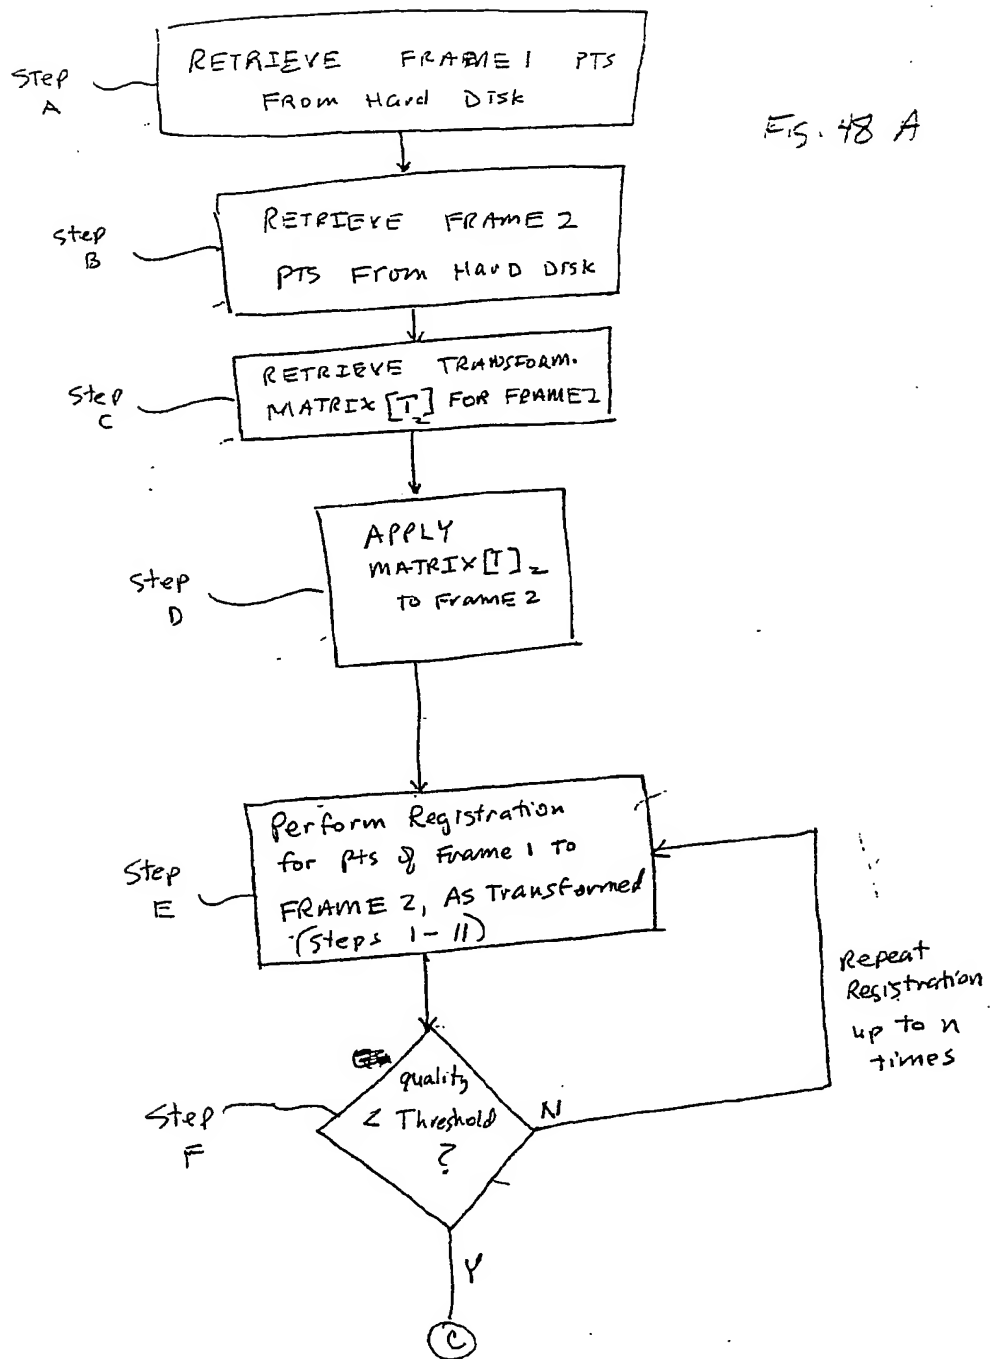 RETRIEVE FRAME 1 PTS
FROM Hard DISK
Step
A
Fig. 48 A
RETRIEVE FRAME 2
PTS From HarD DISK
Step
B
RETRIEVE TRANSFORM.
MATRIX [T2] FOR FRAME 2
Step
C
APPLY
MATRIX [T]2
TO Frame 2
Step
D
Perform Registration
for pts of Frame 1 To
FRAME 2, AS Transformed
(Steps 1-11)
Step
E
Repeat
Registration
up to n
times
quality
< Threshold
?
N
Step
F
Y
C